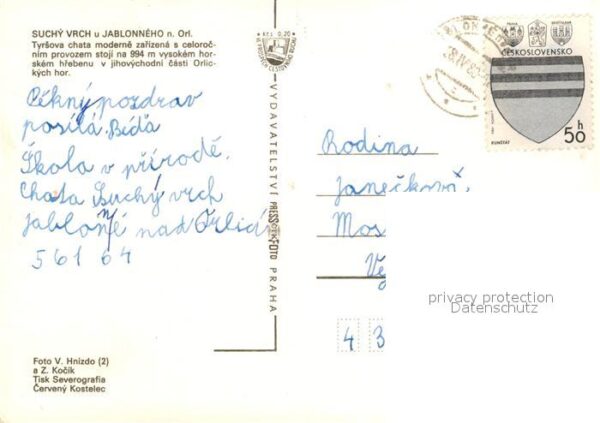 SUCHÝ VRCH u JABLONNÉHO n. Orl.
Tyršova chata moderně zařízená s celoroč-
ním provozem stojí na 994 m vysokém hor-
ském hřebenu v jihovýchodní části Orlic-
kých hor.
Pěkný pozdrav
posílá Bíďa
Škola v přírodě.
Chata Suchý vrch
Jabloné nad Orlicí
561 64
Foto V. Hnízdo (2)
a Z. Kočík
Tisk Severografia
Červený Kostelec
Kčs 0,20
VYDAVATELSTVÍ PRESSFOTO PRAHA
PRAHA BRATISLAVA
ČESKOSLOVENSKO
50 h
KUNŠTÁT
Rodina
Janečkovi.
Mos
Ve
4 3
privacy protection
Datenschutz